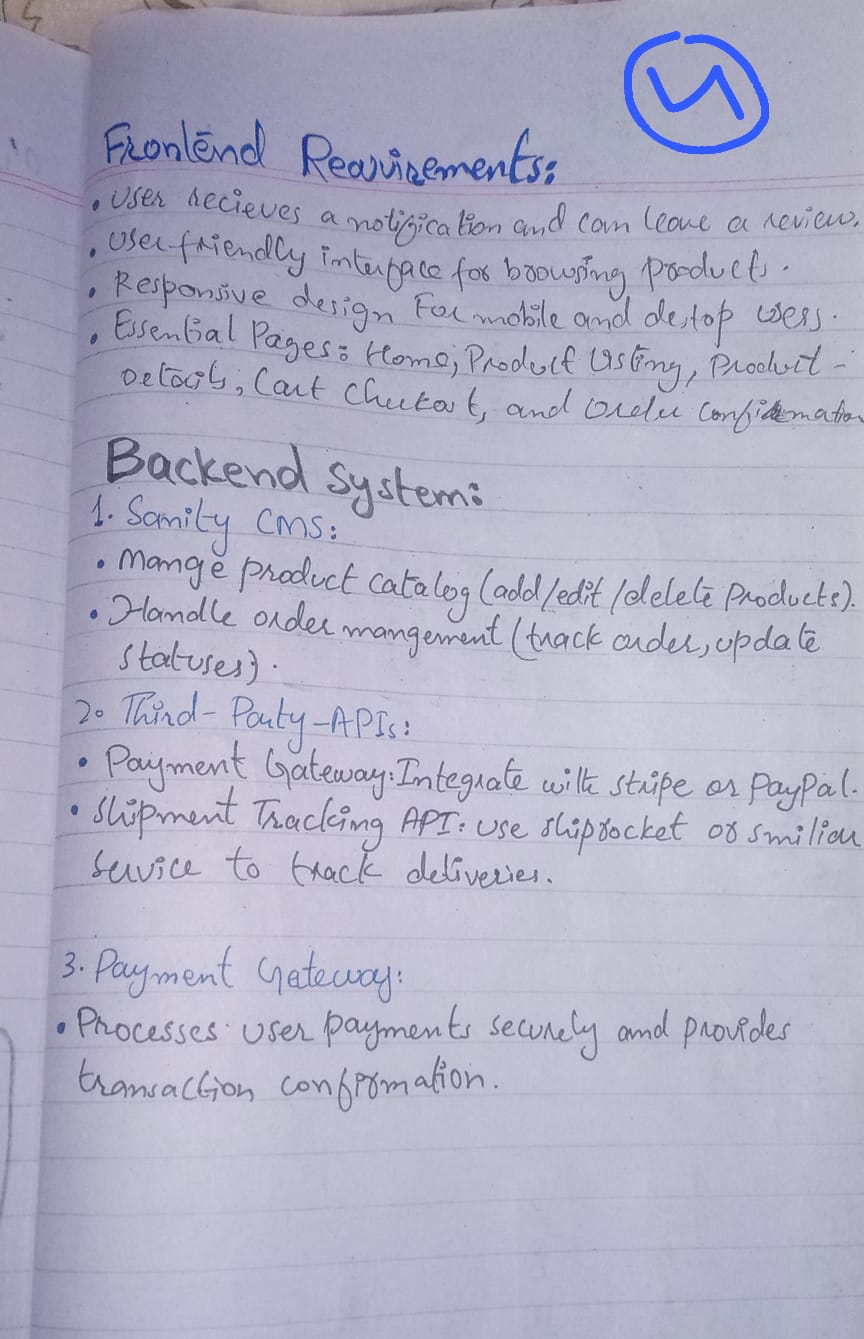 4
Frontend Requirements:
• User recieves a notification and can leave a review.
• User-friendly interface for browsing products.
• Responsive design For mobile and destop users.
• Essential Pages: Home, Product listing, Product -
Details, Cart Checkout, and order confirmation
Backend system:
1. Sanity CMS:
• Mange product catalog (add/edit/delete products).
• Handle order mangement (track order, update
statuses).
2. Third-Party-APIs:
• Payment Gateway: Integrate with stripe or PayPal.
• Shipment Tracking API: use shiprocket or smiliar
service to track deliveries.
3. Payment Gateway:
• Processes user payments securely and provides
transaction confirmation.